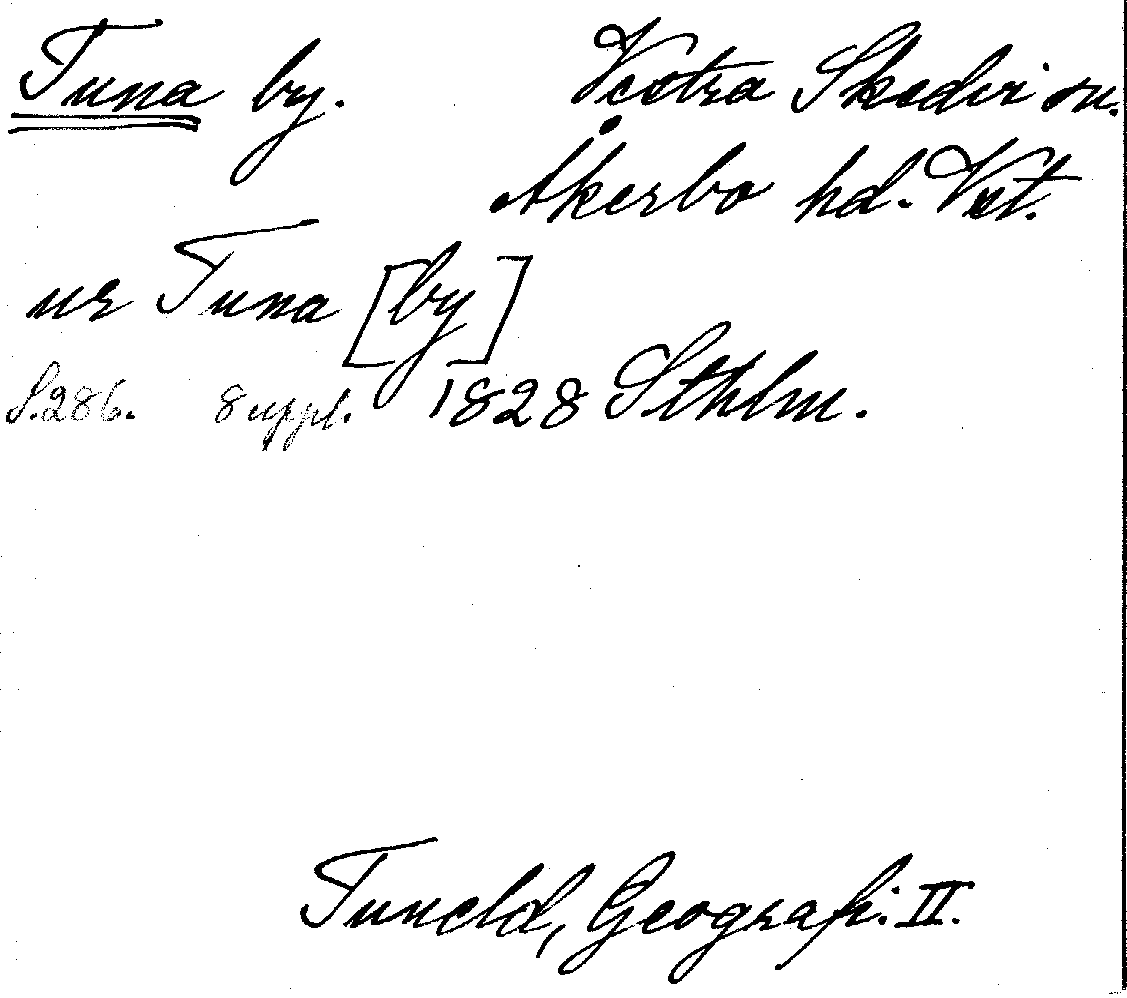 Tuna by. Vestra Skedvi sn.
Åkerbo hd. Vst.
ur Tuna [by]
S. 286. 8 uppl. 1828 Sthlm.
Tuneld, Geografi. II.